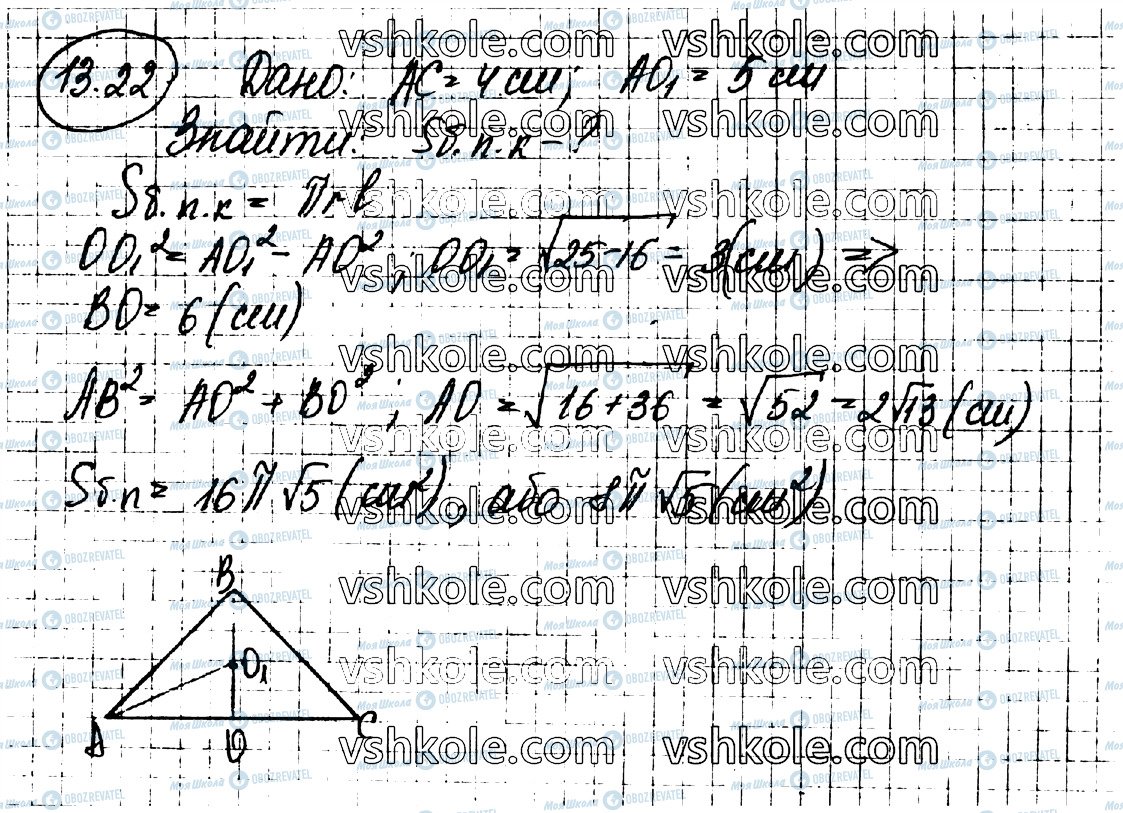 13.22 Дано: AC = 4 см; AO₁ = 5 см
Знайти: Sб.п.к – ?
Sб.п.к = πrl
OO₁² = AO₁² - AO²; OO₁ = √25-16 = 3(см) =>
BO = 6 (см)
AB² = AO² + BO²; AO = √16+36 = √52 = 2√13 (см)
Sб.п = 16π√5 (см²), або 8π√5 (см²)
B
O₁
A O C
vshkole.com
Моя Школа OBOZREVATEL